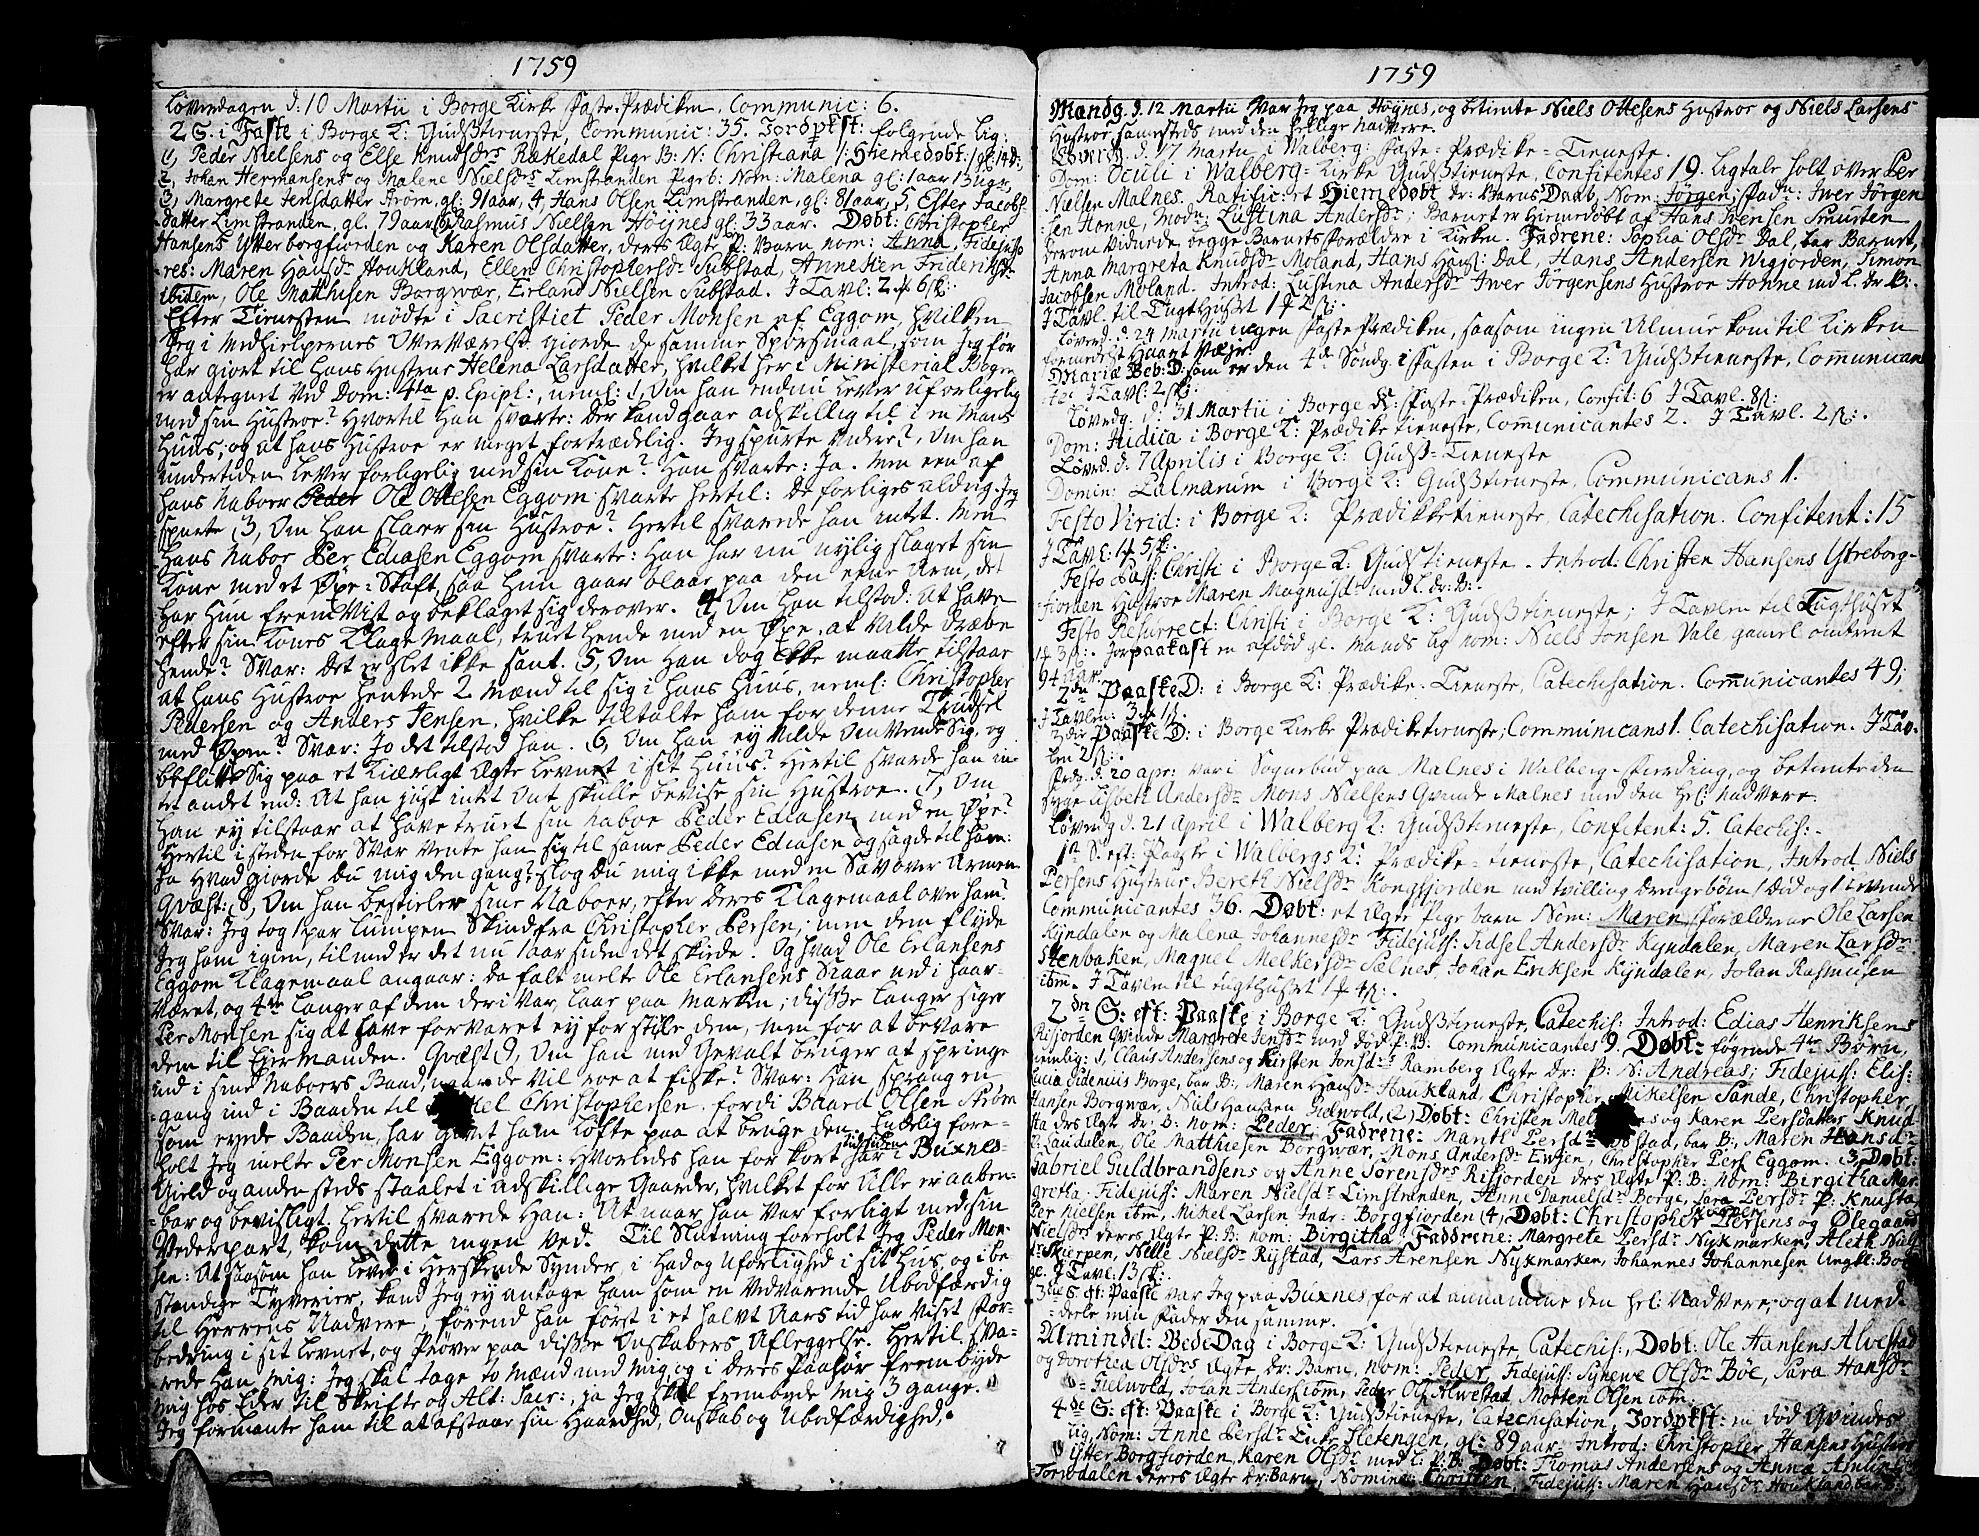 1759
Løverdagen d: 10 Martii i Borge Kirke Faste-Prædiken. Communic: 6.
2 S. i Faste i Borge K: Gudstieneste, Communic: 35. Jordpkst: følgende Lig:
1, Peder Nielsens og Else Knudsdrs Rækedal Pige B: N: Christiana /: Hiemedøbt: / gl: 14 d:
2, Johan Hermansens og Malene Nielsdrs Limstranden Pigeb: Nom: Malena gl: 1 aar 13 uger,
3, Margrete Jensdatter Strøm, gl: 91 aar, 4, Hans Olsen Limstranden, gl: 81 aar, 5, Ester Jacobs-
datter Limstranden, gl. 79 aar 6, Rasmus Nielsen Höÿnes gl: 33 aar. Døbt: Christopher
Hansens Ytterborgfiorden og Karen Olsdatter, deres Ægte P: Barn nom: Anna, Fidejusso
-res: Maren Hansdr Houkland, Ellen Christophersdr Substad, Anneken Friderichsdr
ibidem, Ole Matthisen Borgvær, Erland Nielsen Substad. I Tavl: 2 ʄ 6 ß:
Efter Tienesten mødte i Sacristiet Peder Monsen af Eggom, hvilken
Jeg i Medhielpernes Overværelse giorde de samme Spørsmaal, som Jeg før
har giort til hans Hustrue Helena Larsdatter, hvilket her i Ministerial Bogen
er antegnet ved Dom: 4ta p. Epiph:, neml: 1, Om han endnu lever uforligelig
med sin Hustroe? Hvortil Han svarte: Der kand gaar adskillig til i en Mands
Huus, og at hans Hustroe er meget fortrædelig. Jeg spurte videre?, Om han
undertiden lever forligelig med sin Kone? Han svarte: Ja. Men een af
hans Naboer Peder Ole Ottesen Eggom svarte hertil: De forliges aldrig. Jeg
spurte (3, Om han slaaer sin Hustroe? Hertil svarede han intet. Men
Hans Nabor Per Ediasen Eggom svarte: Han har nu nylig slaget sin
Kone med et Øxe-Skaft, saa hun gaar blaae paa den eene Arm, det
har Hun fremvist og beklaget sig derover. 4, Om Han tilstod: At have
efter sin Kones Klage Maal, truet hende med en Øxe, at vilde dræbe
hende? Svar: Det er slet ikke sant. (5, Om Han dog ikke maatte tilstaae
at hans Hustroe hentede 2 Mænd til sig i hans Huus, neml: Christopher
Pedersen og Anders Jensen, hvilke tiltalte ham for denne Trudsel
med Øxen? Svar: Jo det tilstod han. (6, Om han ey vilde omvende Sig, og
beflitte Sig paa et kiærligt Ægte Levnet i sit Huus? Hertil svarde han in-
tet andet end: At han just intet Ont skulle bevise sin Hustroe. (7, Om
Han ey tilstaar at have truet sin Naboe Peder Ediasen med en Øxe?
Hertil i steden for Svar vente han sig til samme Peder Ediasen og sagde til ham:
Ja Hvad giorde du mig den gang? slog du mig ikke med en Sav over Armen
Qvæst: (8, Om han bestieler sine Naboer, efter deres Klagemaal over ham?
Svar: Jeg tog 1 par Lumpen Skind fra Christopher Persen; men dem flyde
Jeg ham igien, til med er det nu 1 aar siden det skiede. Og hvad Ole Erlansens
Eggom Klagemaal angaar: Da falt melte Ole Erlansens ned i Haar-
været, og 4re Langer af dem deri var, laae paa Marken; disse Langer siger
Per Monsen sig at have forvaret ey for stiele dem, men for at bevare
dem til Eiermanden. Qvæst 9, Om han med Gevalt bruger at springe
ind i sine Naboers Baad, naar de vil roe at fiske? Svar: Han sprang en
-gang ind i Baaden til Christophersen, fordi Baard Olsen Strøm
som eyede Baaden, har givet ham Løfte paa at bruge den. Endelig fore-
holt Jeg melte Per Monsen Eggom: Hvorledes han for kort tid siden har i Buxnes-
Gield og anden steds staalet i adskillige Gaarder, hvilket for Alle er aaben-
-bar og bevisligt. Hertil svarede Han: At naar han var forligt med sin
Vederpart, kom dette ingen ved. Til Slutning foreholt Jeg Peder Mon-
sen: At saasom han lever i Herskende Synder, i Had og Uforlighed i sit Hus, og i be
standige Tyverier, kand Jeg ey antage Ham som en vedvarende Ubodfærdig
til Herrens Nadvere, førend han først i et halvt Aars tid har viset For-
bedring i sit Levnet, og Prøver paa disse Onskabers Afleggelse. Hertil sva-
rede han mig: Jeg skal tage to Mænd med mig, og i deres Paahør frembyde
mig hos Eder til Skrifte og Alt: Sacr:, ja Jeg skal frembyde mig 3 gange.
Jeg formante ham til at afstaae sin Haardhed, Onskab og Ubodfærdighed.
1759
Mandg. d. 12 Martii var Jeg paa Höynes, og betiente Niels Ottesens Hustroe og Niels Larsens
Hustroe sammesteds med den hellige Nadvere.
Løverdg. d. 17 Martii i Walberg: Faste-Prædike-Tieneste.
Dom: Oculi i Walberg-Kirke Gudstieneste, Confitentes 19. Ligtale holt over Per
Nielsen Malnes. Ratific: et Hiemedøbt dr: Barns Daab, Nom: Jørgen, Fadr: Iwer Jørgen
-sen Honne, Modr: Lustina Andersdr; Barnet er Hiemedøbt af Hans Iversen Smorten
derom vidnede begge Barnets Forældre i Kirken. Fadrene: Sophia Olsdr Dal, bar Barnet,
Anna Margreta Knudsdr Moland, Hans Hansl: Dal, Hans Andersen Wigjorden, Simon
Jacobsen Moland. Introd: Lustina Andersdr Iwer Jørgensens Hustroe Honne med L. dr: B:
I Tavl. til Tugthuset 1 ʄ 2 ß:
Løverd. d. 24 Martii ingen Faste Prædiken, saasom ingen Almue kom til Kirken
formedelst haart Væir.
Mariæ Beb: D: som er den 4de Søndg i Fasten i Borge K: Gudstieneste, Communican
tes I Tavl: 2 ß:
Løverdg. d. 31 Martii i Borge K: Faste-Prædiken, Confit: 6 I Tavl. 8 ß:
Dom: Judica i Borge K: Prædiketieneste, Communicantes 2. I Tavl. 2 ß:
Løverd. d: 7 Aprilis i Borge K: Guds-Tieneste
Domin: Palmarum i Borge K: Gudstieneste, Communicans 1.
Festo Virid: i Borge K: Prædiketieneste, Catechisation. Confitent: 15
I Tavl: 1 ʄ 5 ß:
Festo Pass: Christi i Borge K: Gudstieneste. Introd: Christen Hansens Ytreborg-
fiorden Hustroe Maren Magnusdr med L: dr: B:
Festo Resurrect: Christi i Borge K: Gudstieneste; I Tavlen til Tugthuset
1 ʄ 3 ß: Jordpaakast en afdød gl. Mands Lig nom: Niels Jonsen Vale gamel omtrent
94 aar.
2dn PaaskeD: i Borge K: Prædike-Tieneste, Catechisation. Communicantes 49;
I Tavlen: 3 ʄ 1 ß.
3die PaaskeD: i Borge Kirke Prædiketieneste, Communicans 1. Catechisation. I Tav-
len 2 ß:
Fredg. d. 20 Apr: var i Sognebud paa Malnes i Walberg-Fierding, og betiente den
syge Lisbeth Andersdr Mons Nielsens Qvinde Malnes med den hel: Nadvere.
Løverdg d. 21 April i Walberg K: Gudstieneste, Confitent: 5. Catechis:
1ste S. eft: Paaske i Walbergs K: Prædike-tieneste, Catechisation, Introd, Niels
Persens Hustrue Bereth Nielsdr Kongsjorden med tvilling drengebørn 1 død og 1 levende
Communicantes 36. Døbt: et Ægte Pige barn Nom: Maren, Forældrene Ole Larsen
Kyndalen og Malena Johannesdr Fidejuss: Sidsel Andersdr Kyndalen, Maren Larsdr
Stenbaken, Magnel Melkersdr Salnes, Johan Eriksen Kyndalen, Johan Rasmusen
ibm. I Tavlen til Tugthuset 1 ʄ 4 ß:
2dn S: eft: Paaske i Borge K: Gudstieneste, Catechis: Introd: Edias Henriksens
Risfjorden Qvinde Margrete Jensdr med død P: B. Communicantes 9. Døbt: følgende 4re Børn,
nemlig: 1, Claus Andersens og Kirsten Jonsdrs Ramberg Ægte dr: B: N: Andreas; Fidejuss: Elis:
Lucia Sidenius Borge, bar B:, Maren Hansdr Haukland, Christopher Mikelsen Sande, Christopher
Hansen Borgvær, Niels Hansen Gielvold, (2) Døbt: Christen og Karen Persdatter Knud-
sta drs Ægte dr: B: nom: Peder, Fadrene: Persdr stad, bar B:, Maren Hansdr
Saudalen, Ole Matthiesen Borgvær, Mons Andersen, Christopher Pers Eggom. 3, Døbt:
Gabriel Guldbrandsens og Anne Sørensdrs Risfjorden drs Ægte P: B: nom: Birgitha Mar-
gretha; Fidejuss: Maren Nielsdr Limstranden, Anne Danielsdr Borge, Sara Persdr P: Knusta
Per Nielsen ibm, Mikel Larsen Indr: Borgfiorden (4, Døbt: Christopher Persens Skierpen og Ølegaard
Nielsdr deres Ægte P: B: nom: Birgitha, Faddrene: Margrete Persdr Nykmarken, Aleth Niels-
dr Skierpen, Nelle Nielsdr Rystad, Lars Arensen Nykmarken, Johannes Johannesen Ungk: Bor-
ge. I Tavl: 13 ß:
3die S eft: Paaske var Jeg paa Buxnes, for at annamme den hel: Nadvere, og at med-
dele min Fader den samme.
Almindel: BedeDag i Borge K: Gudstieneste, Catechis:, Døbt: Ole Hansens Alvestad
og Dorothea Olsdrs Ægte Dr: Barn, nom: Peder, Fidejuss: Synewe Olsdr Bøe, Sara Hansdr
Gielvold, Johan Anders: ibm, Peder Ols Alvestad, Morten Olsen ibm.
4de S: eft: Paaske i Borge K: Gudstieneste, Catechisation, Jordpkst: en død Qvindes
Lig, Nom: Anne Persdr Enke Sletengen, gl: 89 aar. Introd: Christopher Hansens Hustroe
Ytter Borgfjorden, Karen Olsdr med L: P: B: Døbt: Thomas Andersens og Anna
Torsdalen deres Ægte dr: Barn, Nomine: Christen, Fidejuss: Maren Hansdr Houkland bar B: